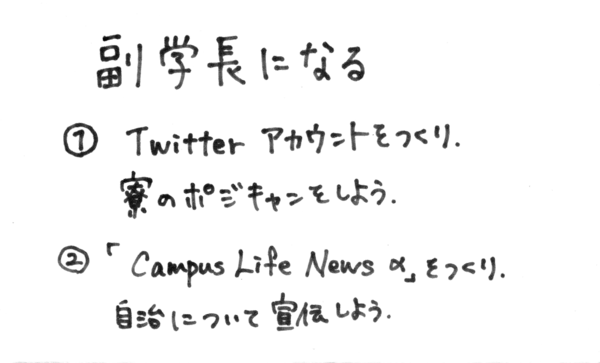 副学長になる
① Twitter アカウントをつくり.
寮のポジキャンをしよう.
② 「Campus Life News α」をつくり.
自治について宣伝しよう.